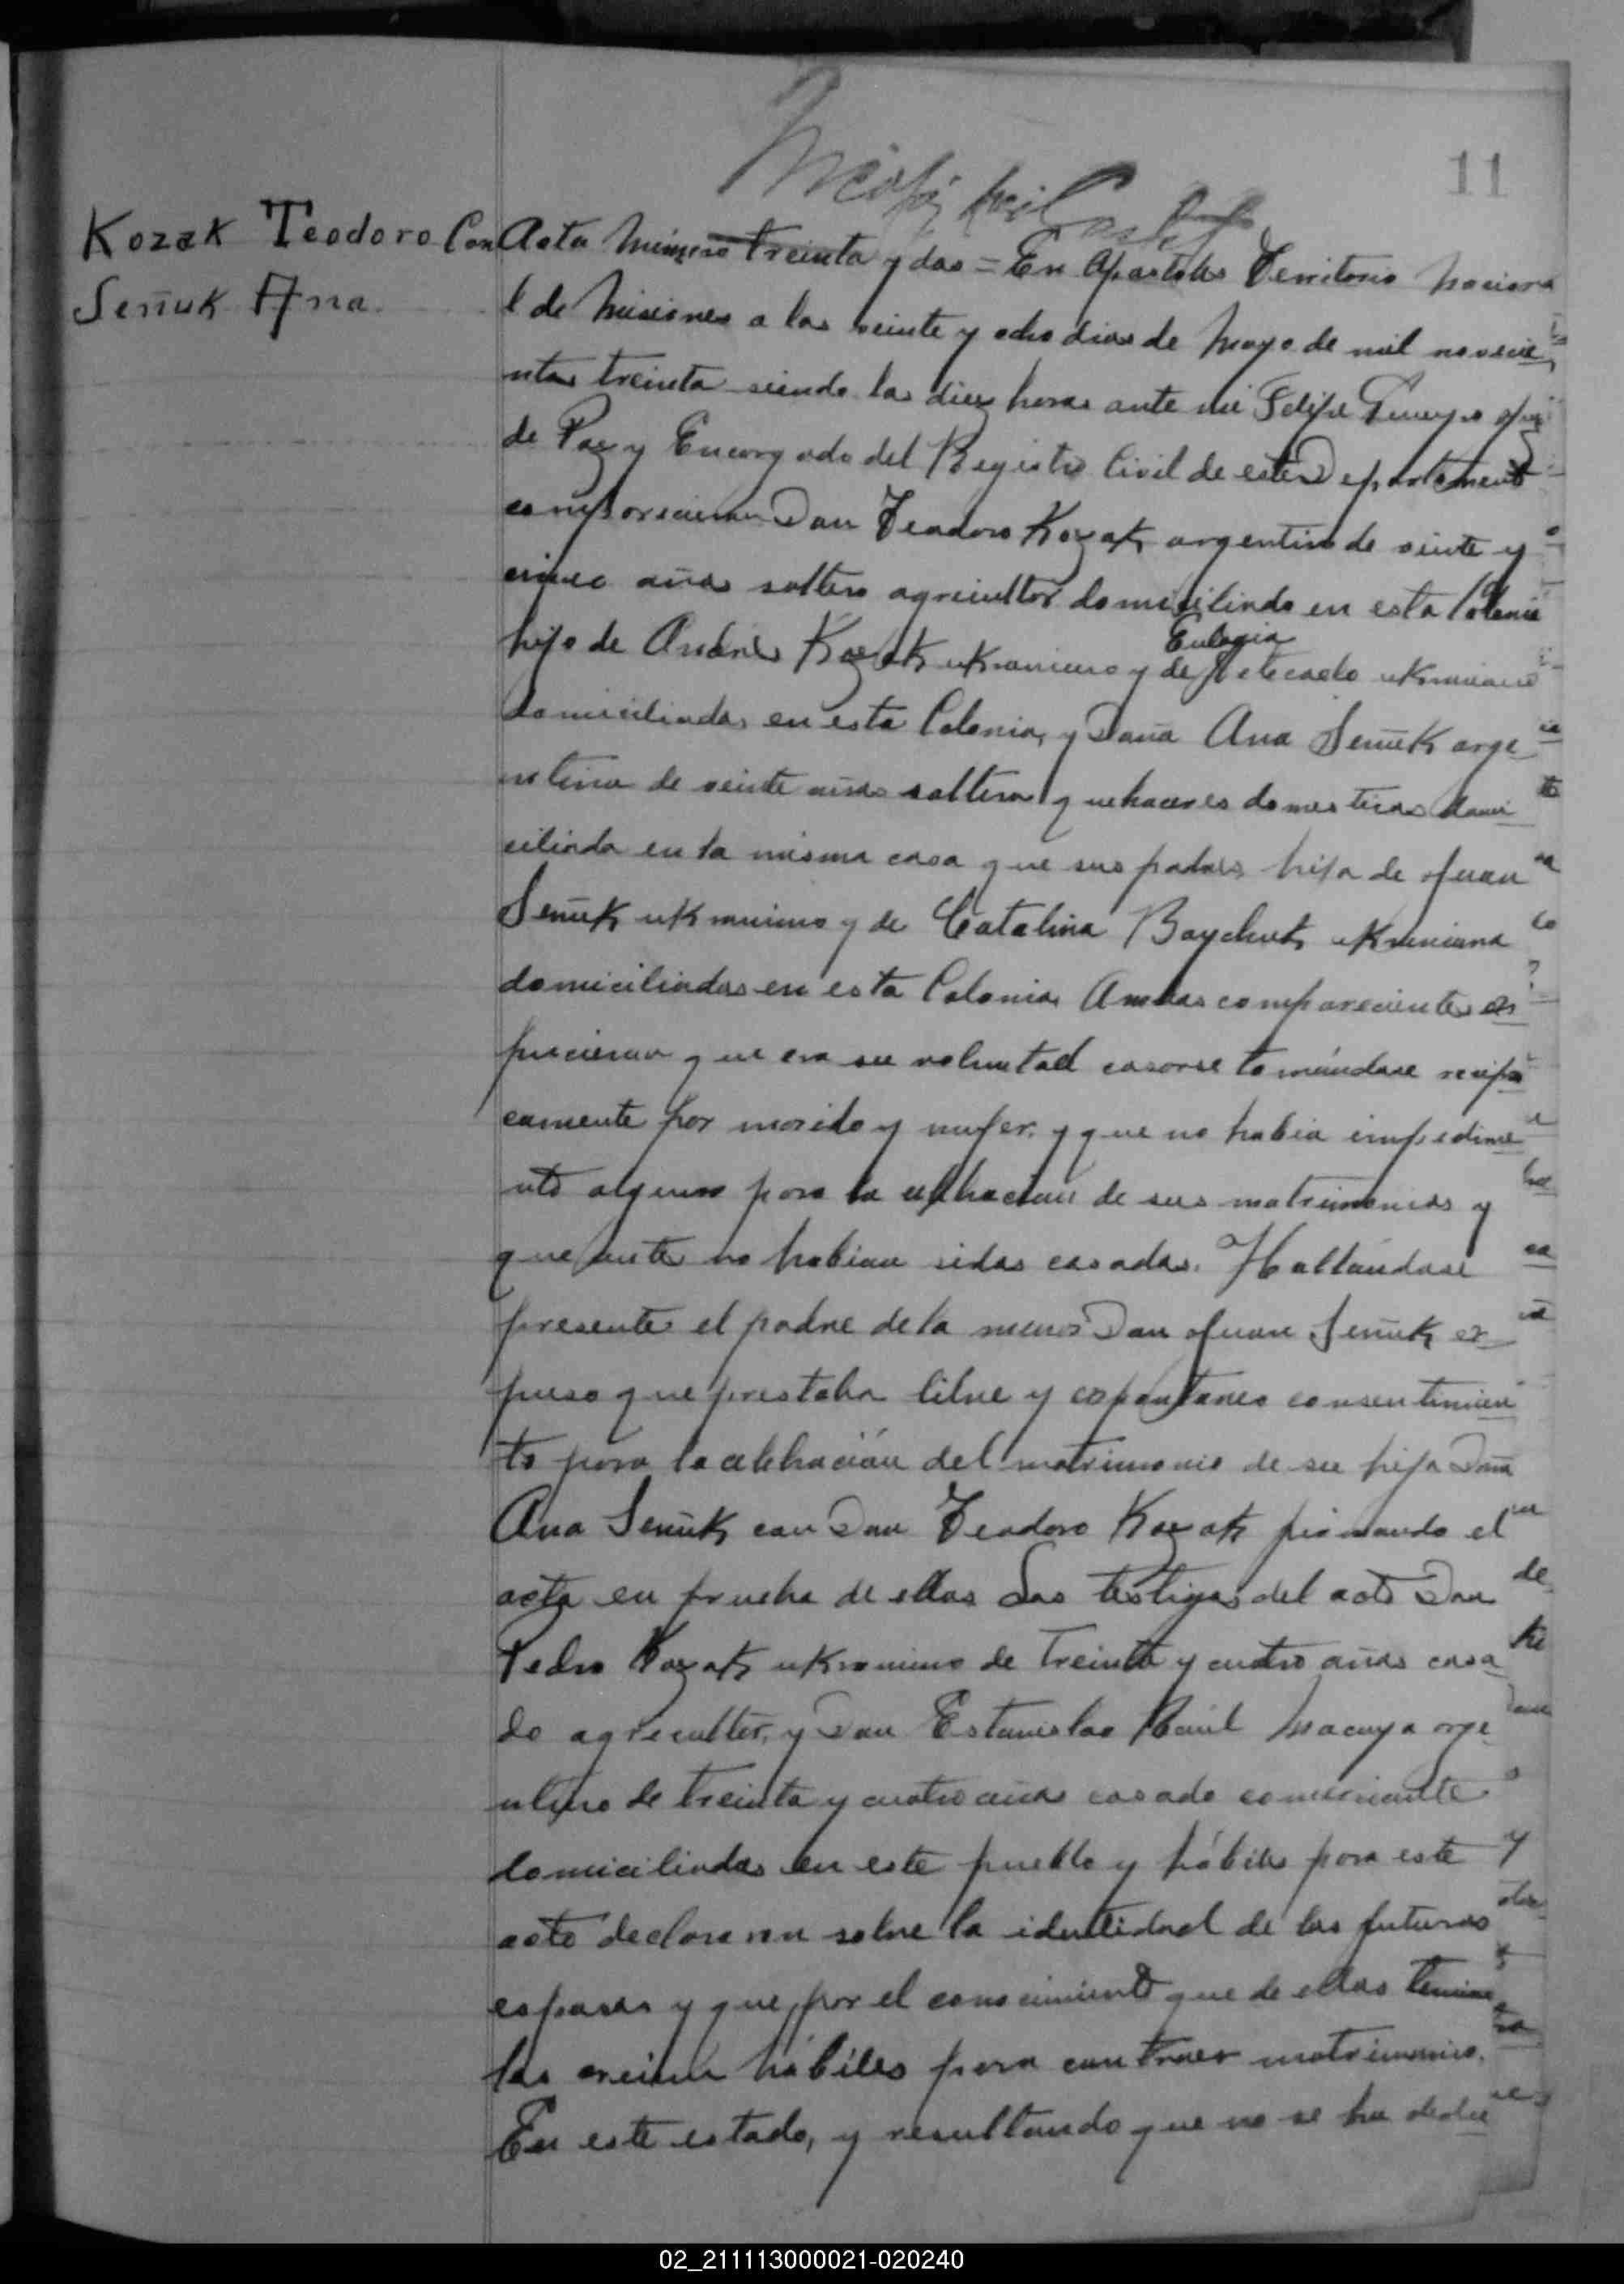 11
Kozak Teodoro Con
Señuk Ana.
Acta Número treinta y dos = En Apostoles Territorio Naciona
l de Misiones a los veinte y ocho dias de Mayo de mil novecie
ntos treinta siendo las diez horas ante mi Felipe Juez
de Paz y Encargado del Registro Civil de este Departamento
comparecieron Don Teodoro Kozak argentino de veinte y
cinco años soltero agricultor domiciliado en esta Colonia
Eulogia
hijo de Andrés Kozak ukraniano y de ukraniana
domiciliados en esta Colonia, y Doña Ana Señuk arge
ntina de veinte años soltera quehaceres domesticos domi
ciliada en la misma casa que sus padres, hija de Juan
Señuk ukraniano y de Catalina Boychuk ukraniana
domiciliados en esta Colonia, Ambos comparecientes ex
pucieron que era su voluntad casarse tomándose recipro
camente por marido y mujer, y que no habia impedime
nto alguno para la celebracion de sus matrimonios y
que antes no habian sidos casados. Hallándose
presente el padre de la menor Don Juan Señuk ex
puso que prestaba libre y espontaneo consentimien
to para la celebración del matrimonio de su hija Doña
Ana Señuk con Don Teodoro Kozak firmando el
acta en prueba de ellos Los testigos del acto Don
Pedro Kozak ukraniano de treinta y cuatro años casa
do agricultor, y Don Estanislao Raúl Macaya arge
ntino de treinta y cuatro años casado comerciante
domiciliados en este pueblo y hábiles para este
acto declararon sobre la identidad de los futuros
esposos y que por el conocimiento que de ellos tenian
los creian hábiles para contraer matrimonio.
En este estado, y resultando que no se ha dedu
02_211113000021-020240